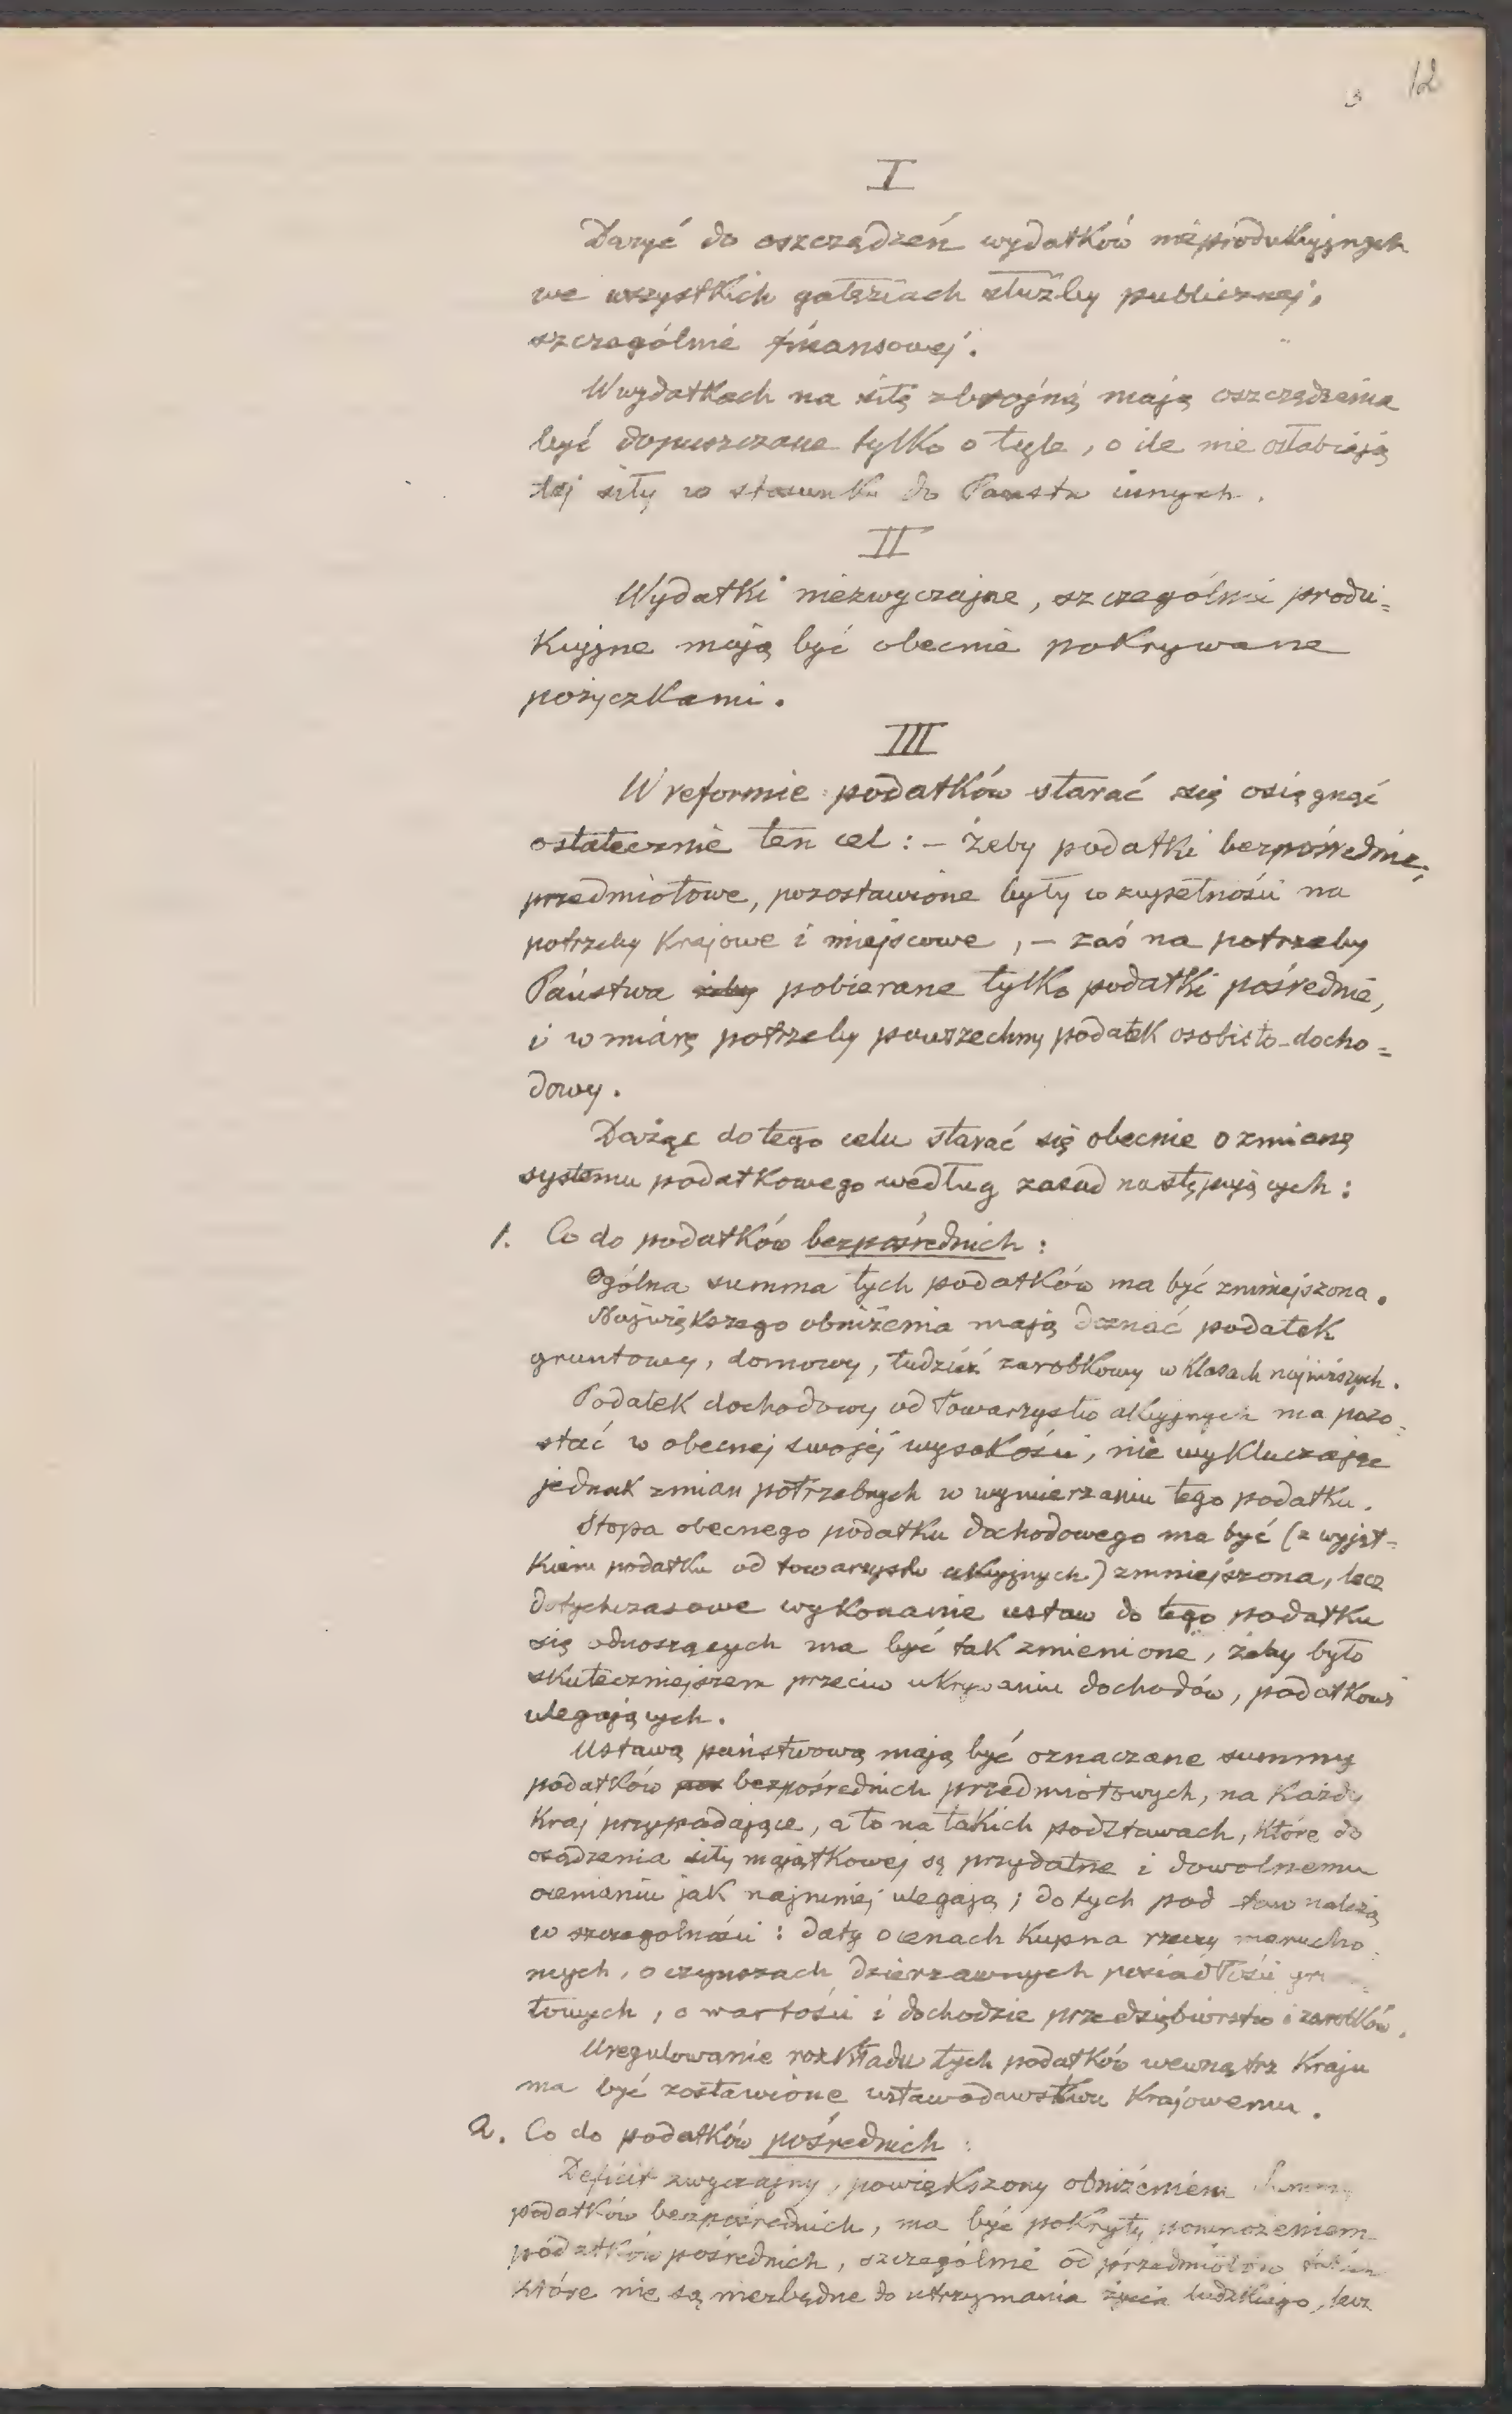 12
I
Dążyć do oszczędzeń wydatków nieprodukcyjnych
we wszystkich gałęziach służby publicznej,
szczególnie finansowej.
W wydatkach na siłę zbrojną mają oszczędzenia
być dopuszczane tylko o tyle, o ile nie osłabiają
tej siły w stosunku do Państw innych.
II
Wydatki niezwyczajne, szczególnie produ=
kcyjne mają być obecnie pokrywane
pożyczkami.
III
W reformie podatków starać się osiągnąć
ostatecznie ten cel: – żeby podatki bezpośrednie,
przedmiotowe, pozostawione były w zupełności na
potrzeby krajowe i miejscowe, – zaś na potrzeby
Państwa żeby pobierane tylko podatki pośrednie,
i w miarę potrzeby powszechny podatek osobisto-docho=
dowy.
Dążąc do tego celu starać się obecnie o zmianę
systemu podatkowego według zasad następujących:
1. Co do podatków bezpośrednich:
Ogólna summa tych podatków ma być zmniejszona.
Największego obniżenia mają doznać podatek
gruntowy, domowy, tudzież zarobkowy w klasach najniższych.
Podatek dochodowy od towarzystw akcyjnych ma pozo=
stać w obecnej swojej wysokości, nie wykluczając
jednak zmian potrzebnych w wymierzaniu tego podatku.
Stopa obecnego podatku dochodowego ma być (z wyjąt=
kiem podatku od towarzystw akcyjnych) zmniejszona, lecz
dotychczasowe wykonanie ustaw do tego podatku
się odnoszących ma być tak zmienione, żeby było
skuteczniejszem przeciw ukrywaniu dochodów, podatkowi
ulegających.
Ustawą państwową mają być oznaczane summy
podatków pos bezpośrednich przedmiotowych, na każdy
kraj przypadające, a to na takich podstawach, które do
osądzenia siły majątkowej są przydatne i dowolnemu
ocenianiu jak najmniej ulegają; do tych pod staw należą
w szczególności: daty o cenach kupna rzeczy nierucho=
mych, o czynszach dzierżawnych posiadłości
towych, o wartości i dochodzie przedsiębiorstw i zarobków.
Uregulowanie rozkładu tych podatków wewnątrz kraju
ma być zostawione ustawodawstwu krajowemu.
2. Co do podatków pośrednich:
Deficit zwyczajny, powiększony obniżeniem Summy
podatków bezpośrednich, ma być pokryty pomnożeniem
podatków pośrednich, szczególnie od przedmiotów takich
które nie są niezbędne do utrzymania życia ludzkiego, lecz